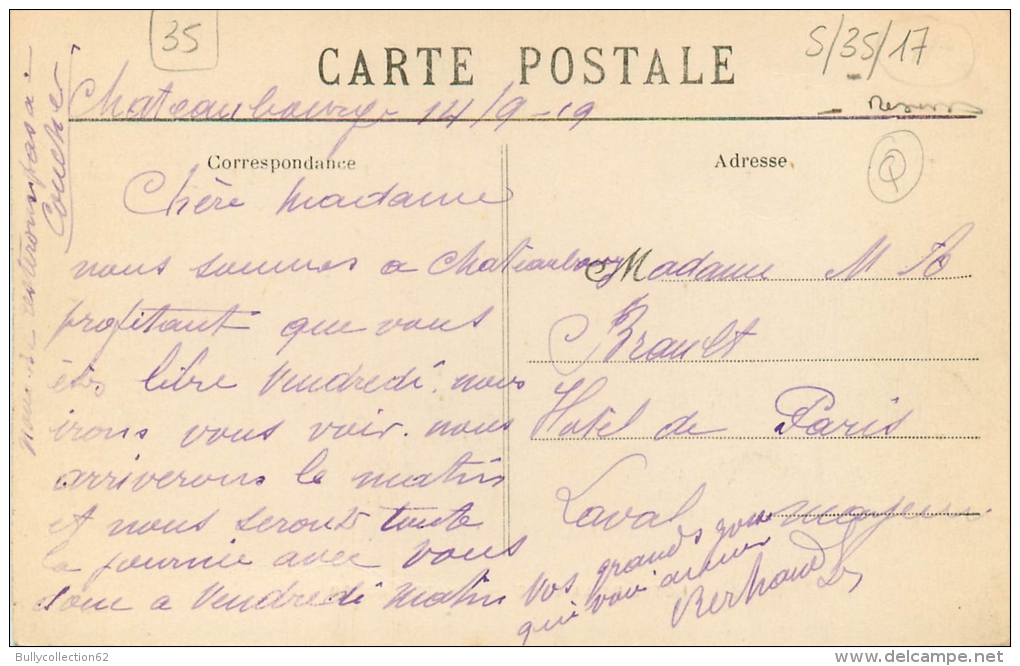 35
S/35/17
CARTE POSTALE
Chateaubourg 14/9-19
Correspondance
Adresse
Chère Madame
nous sommes a Chateaubourg
profitant que vous
êtes libre Vendredi. nous
irons vous voir. nous
arriverons le matin
et nous seront toute
la journée avec vous
donc a Vendredi matin
nous ne resterons pas a
Coucher
Madame M
Brault
Hotel de Paris
Laval
Vos grands
qui
Bullycollection62
www.delcampe.net